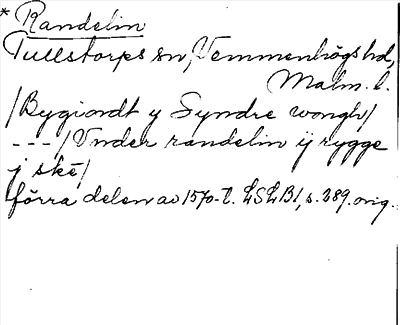 * Randelin
Tullstorps sn, Vemmenhögs hd,
Malm. l.
/Bygiordt y Syndre wongh/
---/Vnder randelin ij rygge
j skė/
förra delen av 1570-t. LSLB1, s. 289. orig.